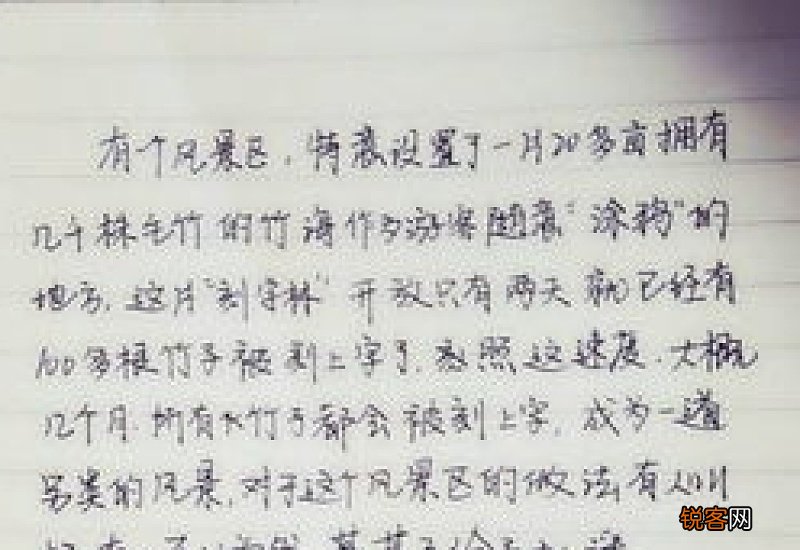 有个风景区，特意设置了一片20多亩拥有
几千株毛竹的竹海作为游客随意“涂鸦”的
地方，这片“刻字林”开放只有两天就已经有
100多根竹子被刻上字了，按照这速度，大概
几个月，所有大竹子都会被刻上字，成为一道
另类的风景，对于这个风景区的做法，有人叫
锐客网